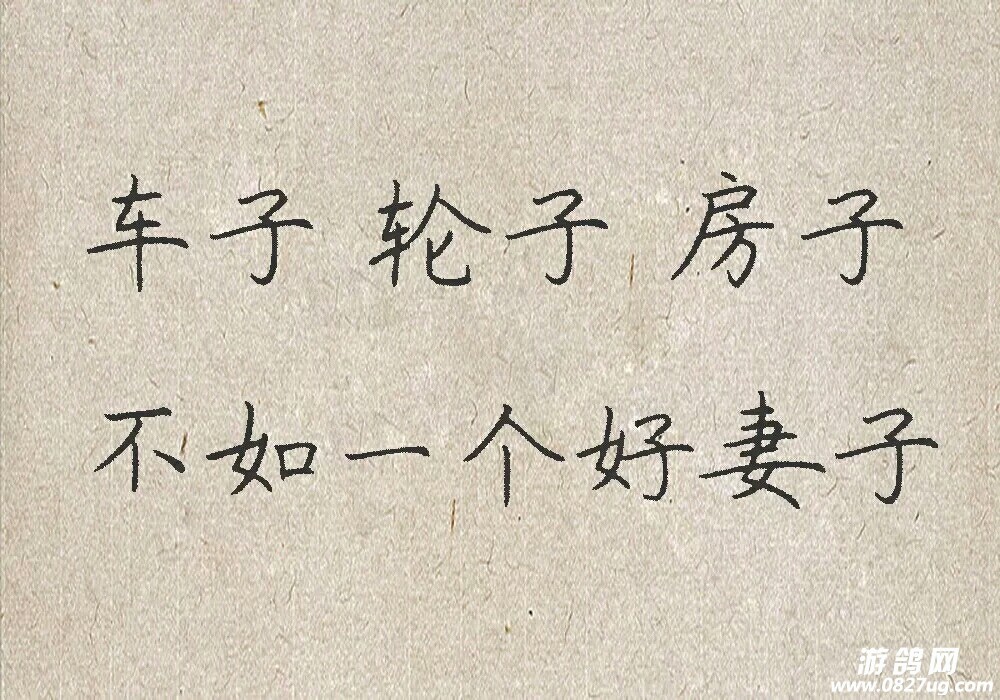 车子 轮子 房子
不如一个好妻子
游鸽网
www.0827ug.com